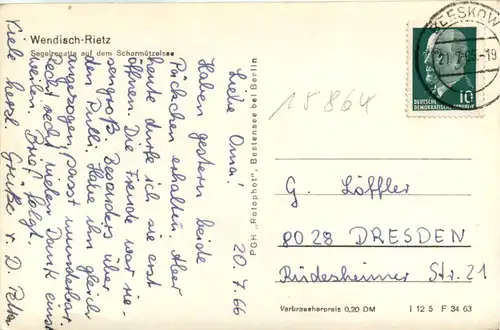 Wendisch-Rietz
Segelregatta auf dem Scharmützelsee
20.7.66
Liebe Oma!
Haben gestern beide
Päckchen erhalten. Aber
heute durfte ich sie erst
öffnen. Die Freude war rie-
sengroß. Besonders über
den Pulli. Habe ihn gleich
angezogen, passt wunderbar.
Recht recht vielen Dank einst-
weilen. Brief folgt.
Viele herzl. Grüße v. D.
PGH „Rotophot", Bestensee bei Berlin
15864
BEESKOW
DEUTSCHE
DEMOKRATISCHE REPUBLIK
10
G. Löffler
8028 DRESDEN
Rüdesheimer Str. 21
Verbraucherpreis 0,20 DM
I 12 5 F 34 63